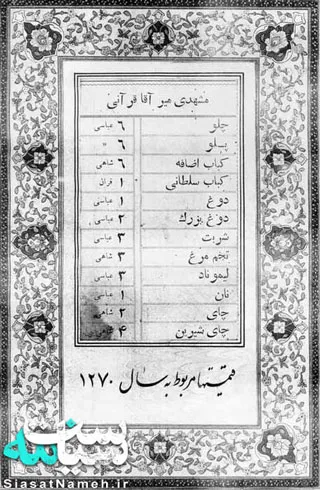 مشهدی میر آقا قرآنی
چلو ۶ عباسی
پلو ۶ "
کباب اضافه ۶ شاهی
کباب سلطانی ۱ قران
دوغ ۱ عباسی
دوغ بزرگ ۲ عباسی
شربت ۳ عباسی
تخم مرغ ۳ شاهی
لیموناد ۳ عباسی
نان ۱ عباسی
چای ۲ شاهی
چای شیرین ۴
قیمتها مربوط به سال ۱۲۷۰
سیاست نامه
SiasatNameh.ir